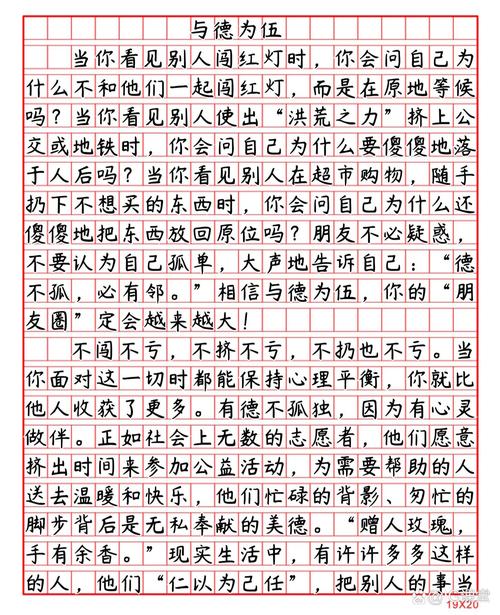 与德为伍
当你看见别人闯红灯时，你会问自己为
什么不和他们一起闯红灯，而是在原地等候
吗？当你看见别人使出“洪荒之力”挤上公
交或地铁时，你会问自己为什么要傻傻地落
于人后吗？当你看见别人在超市购物，随手
扔下不想买的东西时，你会问自己为什么还
傻傻地把东西放回原位吗？朋友不必疑惑，
不要认为自己孤单，大声地告诉自己：“德
不孤，必有邻。”相信与德为伍，你的“朋
友圈”定会越来越大！
不闯不亏，不挤不亏，不扔也不亏。当
你面对这一切时都能保持心理平衡，你就比
他人收获了更多。有德不孤独，因为有心灵
做伴。正如社会上无数的志愿者，他们愿意
挤出时间来参加公益活动，为需要帮助的人
送去温暖和快乐，他们忙碌的背影、匆忙的
脚步背后是无私奉献的美德。“赠人玫瑰，
手有余香。”现实生活中，有许许多多这样
的人，他们“仁以为己任”，把别人的事当
19X20